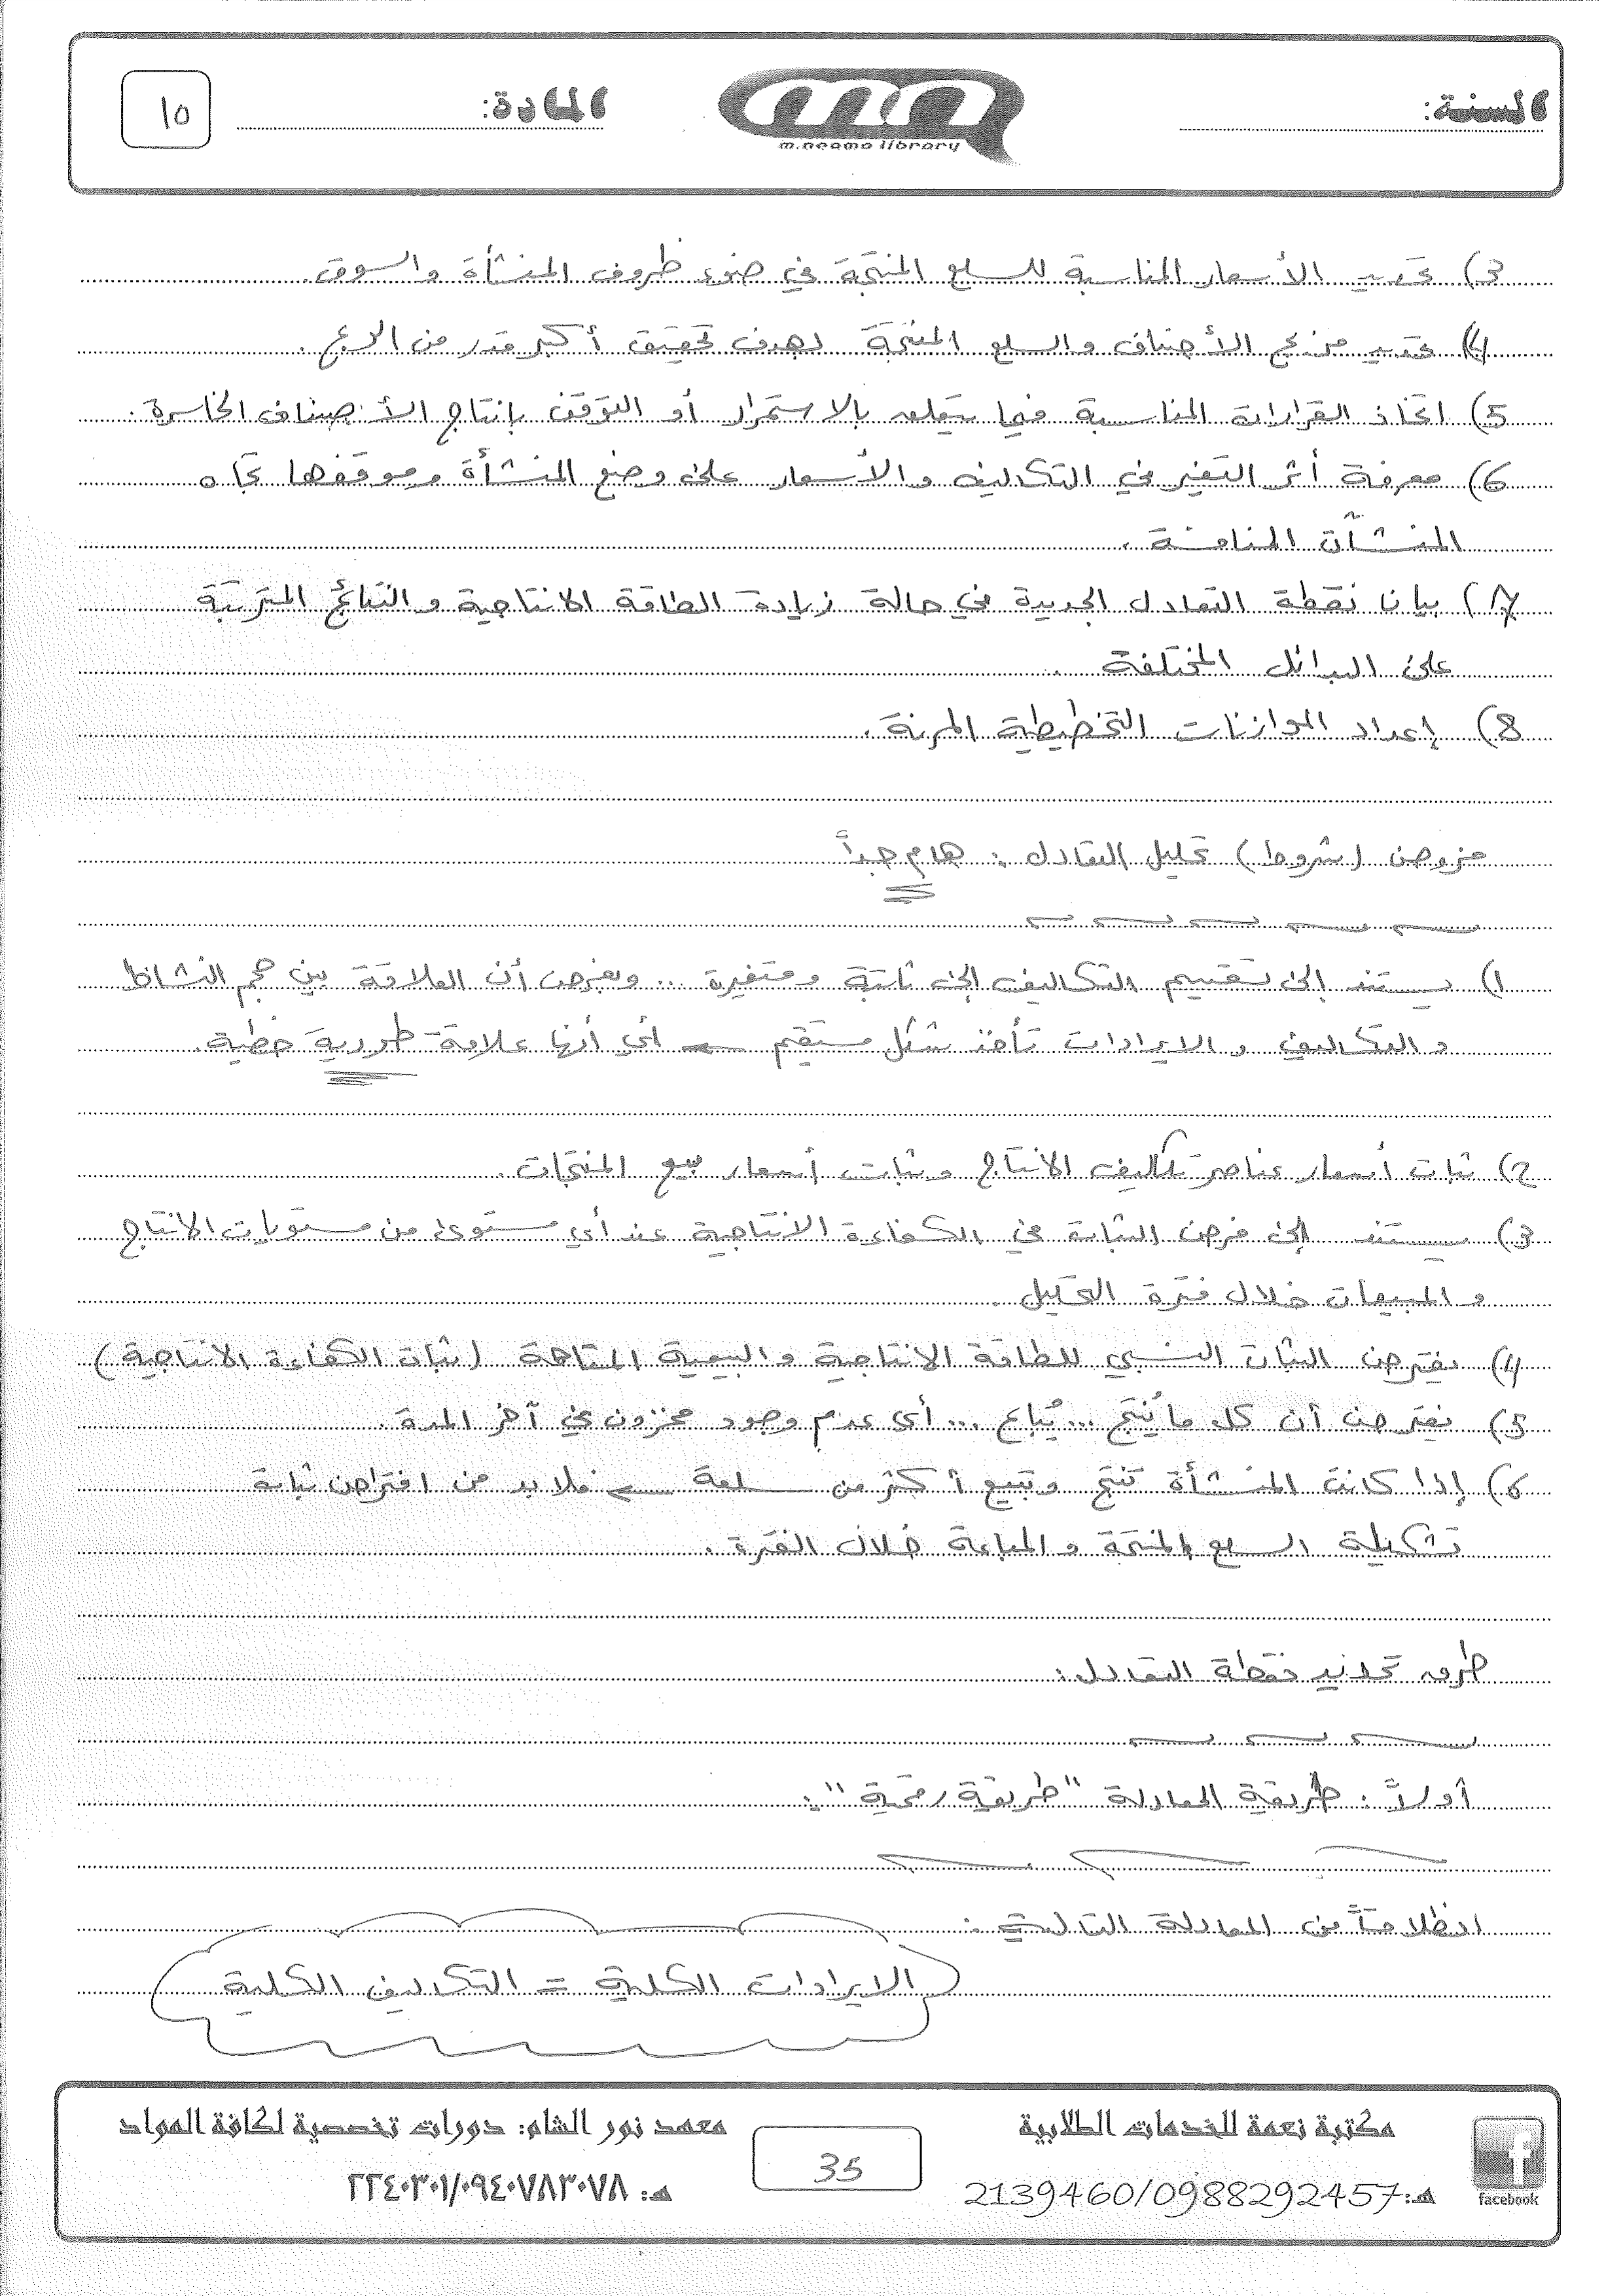 السنة:
m.neama library
المادة:
١٥
3) تحديد الأسعار المناسبة للسلع المنتجة في ضوء ظروف المنشأة والسوق.
4) تحديد مزيج الأصناف والسلع المنتجة بهدف تحقيق أكبر قدر من الربح.
5) اتخاذ القرارات المناسبة فيما يتعلق بالاستمرار أو التوقف بإنتاج الأصناف الخاسرة.
6) معرفة أثر التغير في التكاليف والأسعار على وضع المنشأة وموقفها تجاه
المنشآت المنافسة.
7) بيان نقطة التعادل الجديدة في حالة زيادة الطاقة الانتاجية والنتائج المترتبة
على البدائل المختلفة.
8) إعداد الموازنات التخطيطية المرنة.
فروض (شروط) تحليل التعادل: هام جداً
1) يستند إلى تقسيم التكاليف إلى ثابتة ومتغيرة ... ويفترض أن العلاقة بين حجم النشاط
والتكاليف والايرادات تأخذ شكل مستقيم ← أي أنها علاقة طردية خطية.
2) ثبات أسعار عناصر تكاليف الانتاج وثبات أسعار بيع المنتجات.
3) يستند إلى فرض الثبات في الكفاءة الانتاجية عند أي مستوى من مستويات الانتاج
والمبيعات خلال فترة التحليل.
4) يفترض الثبات النسبي للطاقة الانتاجية والبيعية المتاحة (ثبات الكفاءة الانتاجية)
5) نفترض أن كل ما يُنتج ... يُباع ... أي عدم وجود مخزون في آخر المدة.
6) إذا كانت المنشأة تنتج وتبيع أكثر من سلعة ← فلا بد من افتراض ثبات
تشكيلة السلع المنتجة والمباعة خلال الفترة.
طرق تحديد نقطة التعادل:
أولاً: طريقة المعادلة "طريقة رقمية":
انطلاقاً من المعادلة التالية:
الايرادات الكلية = التكاليف الكلية
مكتبة نعمة للخدمات الطلابية
هـ: 2139460/0988292457
facebook
35
معهد نور الشام: دورات تخصصية لكافة المواد
هـ: ٢٢٤٠٣٠١/٠٩٤٠٧٨٣٠٧٨